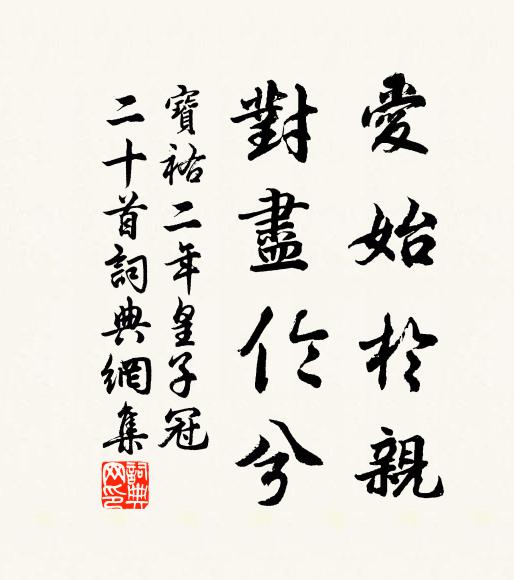 愛始於親
對盡倫兮
寶祐二年皇子冠
二十首詞典網集
詞典
網印